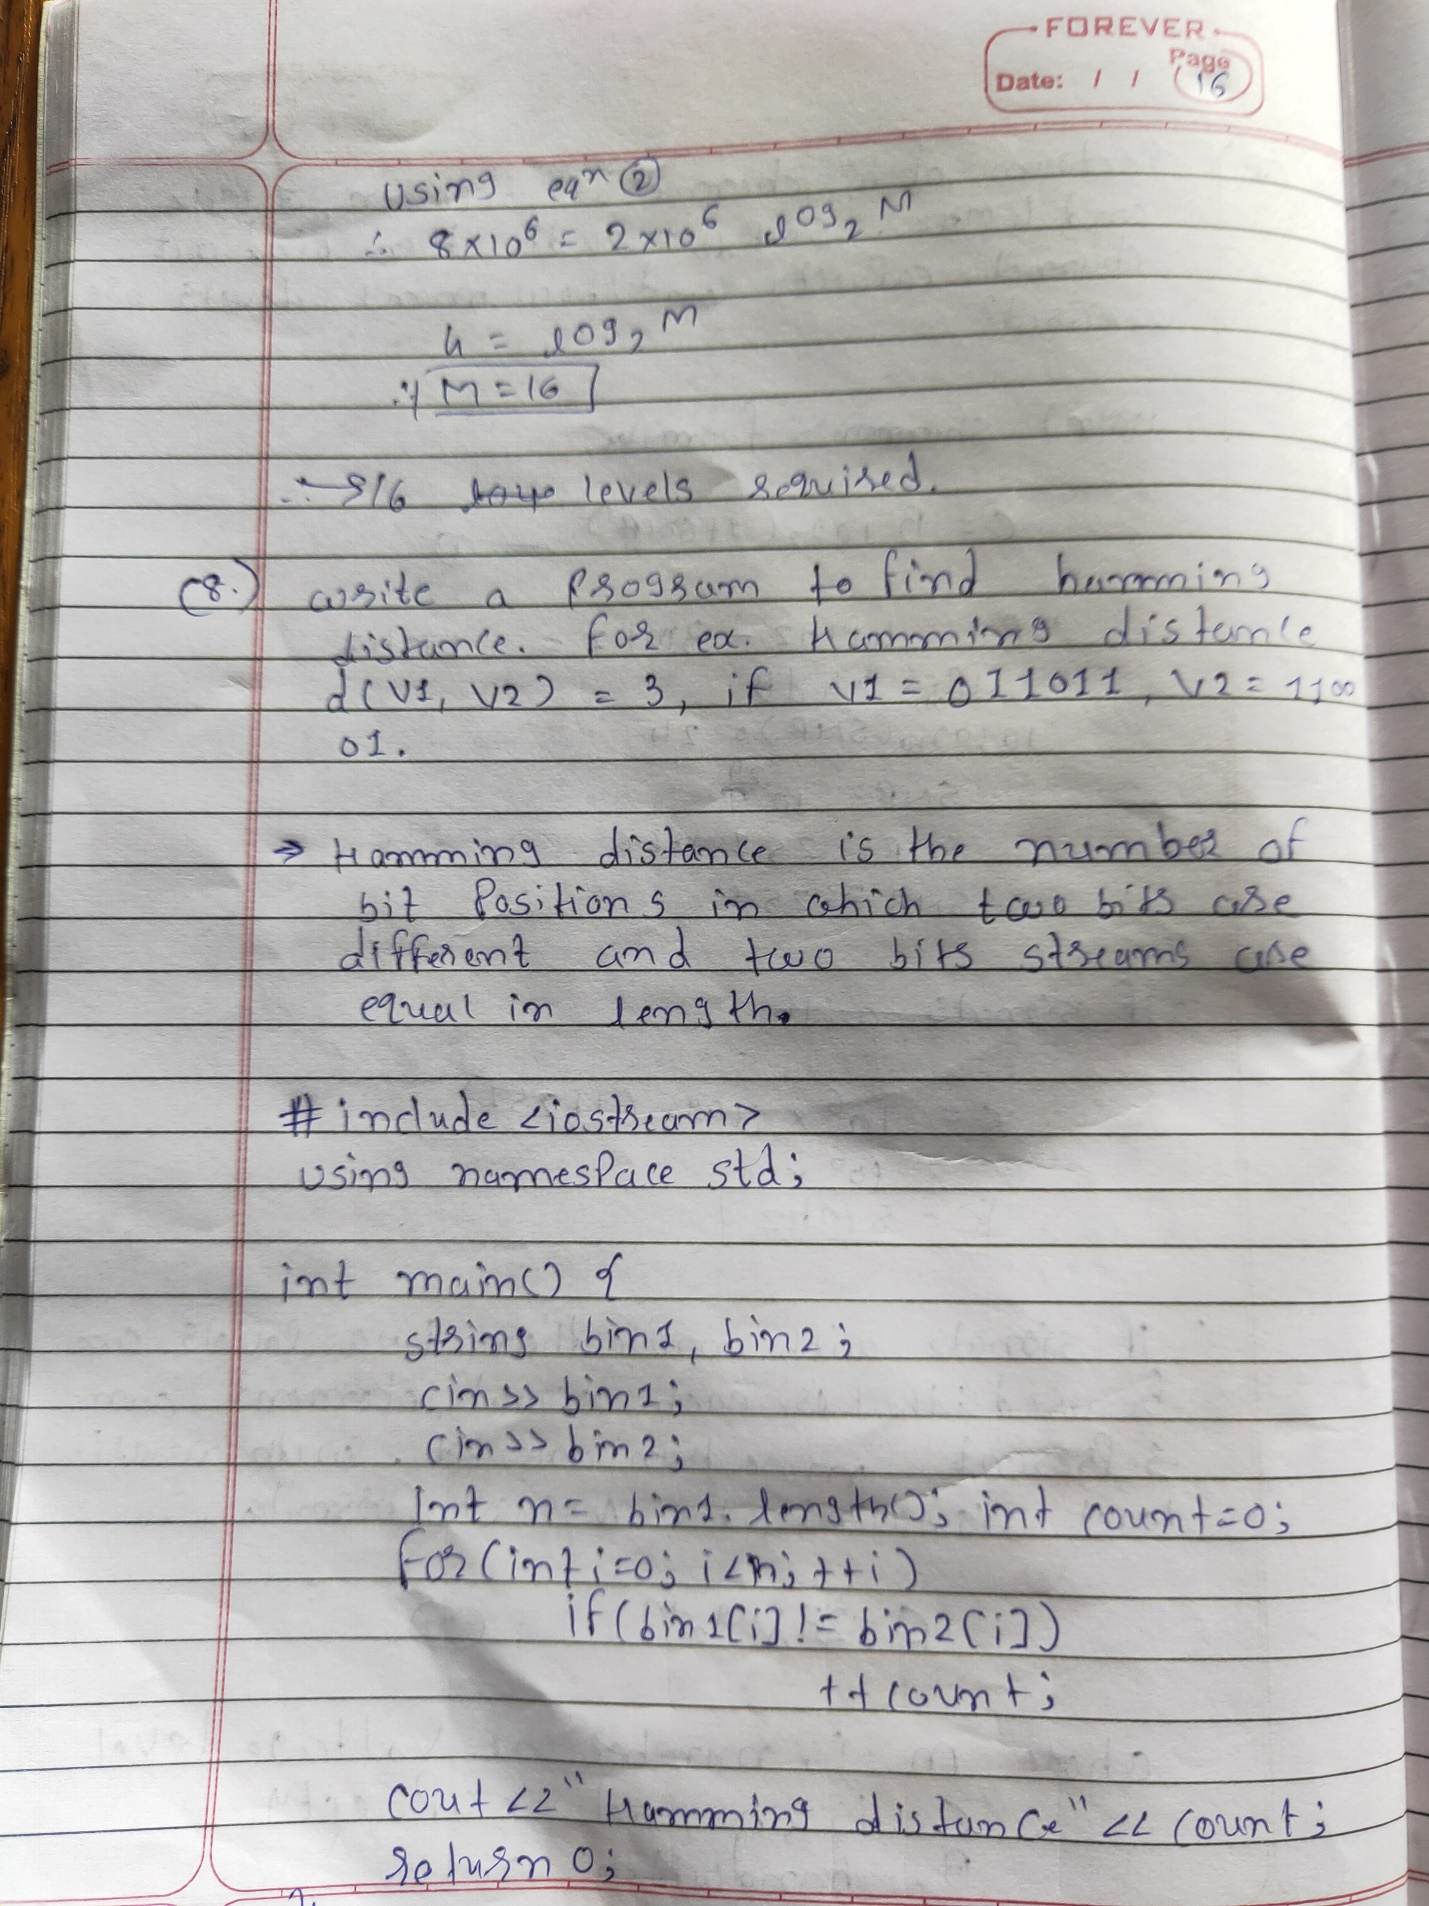 FOREVER
Page
Date: / / 16
Using eqn ②
∴ 8×10⁶ = 2×10⁶ log₂ M
4 = log₂ M
∴ M = 16
∴ 16 levels required.
(8.) write a Program to find hamming
distance. For ex. Hamming distance
d(V1, V2) = 3, if V1 = 011011, V2 = 1100
01.
→ Hamming distance is the number of
bit Positions in which two bits are
different and two bits streams are
equal in length.
#include <iostream>
using namespace std;
int main() {
string bin1, bin2;
cin>> bin1;
cin>> bin2;
int n = bin1.length(); int count=0;
for(int i=0; i<n; ++i)
if(bin1[i] != bin2[i])
++count;
cout <<"Hamming distance" << count;
return 0;